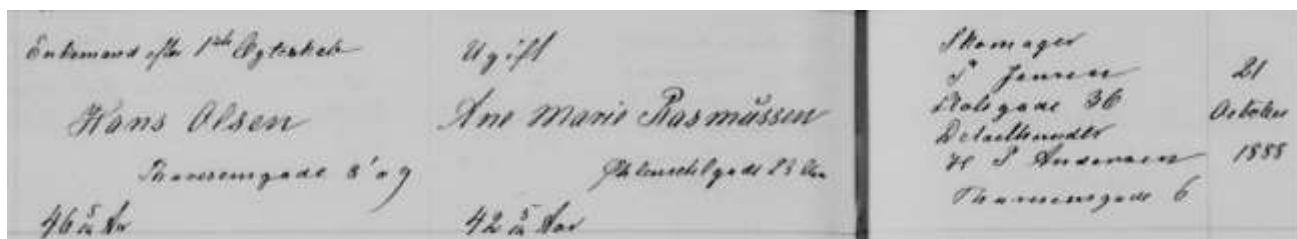 Enkemand efter 1ste Ægteskab
Hans Olsen
Thavesensgade 8' og
46 5/12 Aar
Ugift
Ane Marie Rasmussen
42 5/12 Aar
Skomager
P Jensen
36
Detailhandler
H P Andersen
Thavesensgade 6
21
October
1888